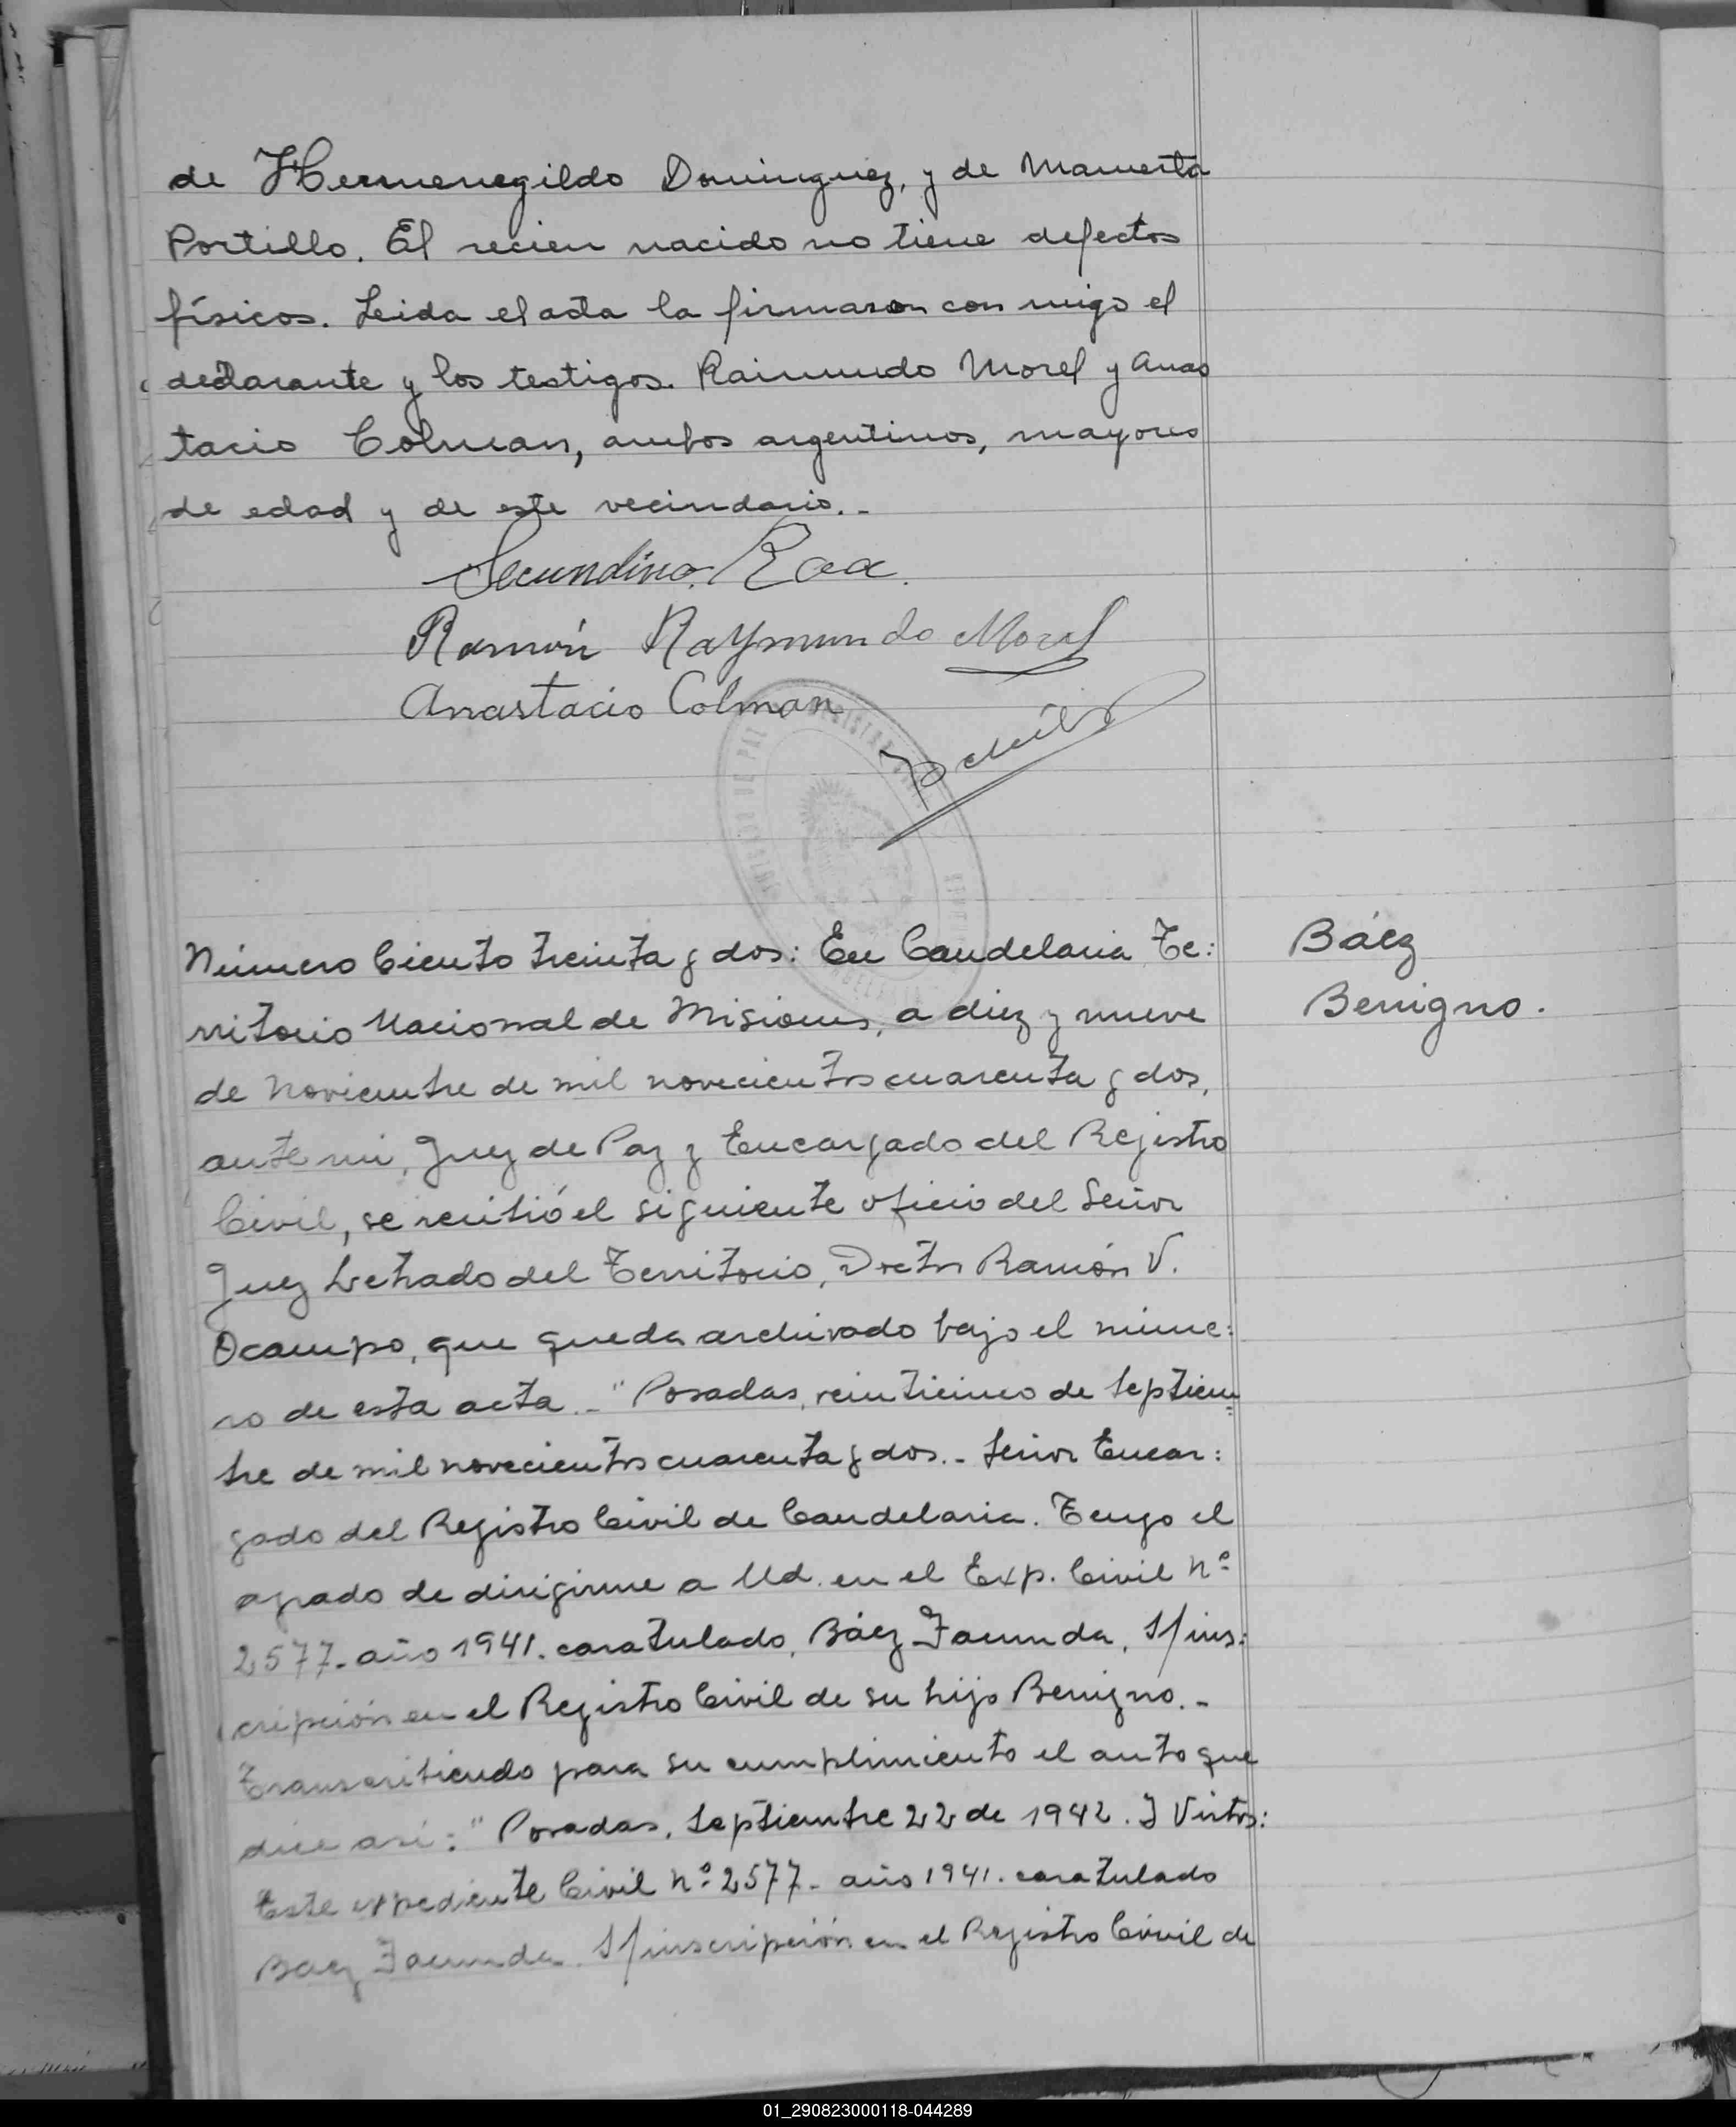 de Hermenegildo Dominguez, y de Mamerta
Portillo. El recien nacido no tiene defectos
físicos. Leida el acta la firmaron con migo el
declarante y los testigos. Raimundo Morel y Anas
tacio Colman, ambos argentinos, mayores
de edad y de este vecindario.-
Secundino Roa.
Ramón Raymundo Morel
Anastacio Colman
Número Ciento treinta y dos: En Candelaria Te:
Báez
rritorio Nacional de Misiones, a diez y nueve
Benigno.
de Noviembre de mil novecientos cuarenta y dos,
ante mi, Juez de Paz y Encargado del Registro
Civil, se recibió el siguiente oficio del Señor
Juez Letrado del Territorio, Doctor Ramón V.
Ocampo, que queda archivado bajo el núme:
ro de esta acta.- "Posadas, veinticinco de Septiem
bre de mil novecientos cuarenta y dos.- Señor Encar:
gado del Registro Civil de Candelaria. Tengo el
agrado de dirigirme a Ud. en el Exp. Civil Nº
2577- año 1941. caratulado, Báez Facunda, S/ins:
cripción en el Registro Civil de su hijo Benigno.-
Transcribiendo para su cumplimiento el auto que
dice así: "Posadas, Septiembre 22 de 1942. Y Vistos:
Este expediente Civil Nº 2577- año 1941. caratulado
Baez Facunda. S/inscripción en el Registro Civil de
01_290823000118-044289